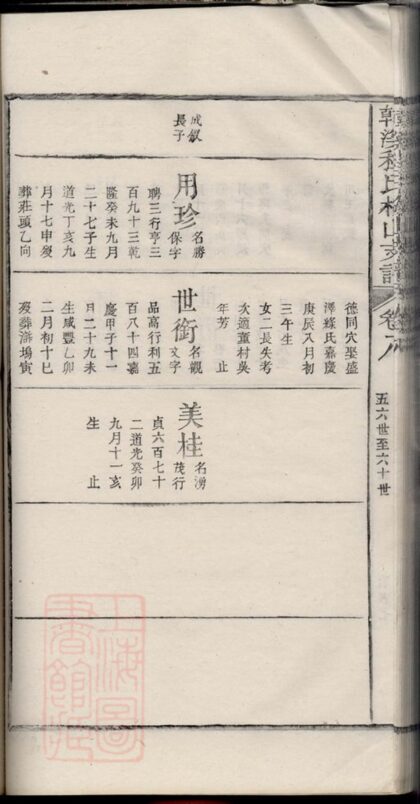 韓溪程氏梅山支譜
卷八
五六世至六十世
成叙
長子
用珍
名勝
保字
聘三行亨三
百九十三乾
隆癸未九月
二十七子生
道光丁亥九
月十七申歿
葬莊頭乙向
德同穴娶盛
澤緱氏嘉慶
庚辰八月初
三午生
女二長失考
次適董村吳
年芳 止
世銜
名觀
文字
品高行利五
百八十四嘉
慶甲子十一
月二十九未
生咸豐乙卯
二月初十巳
歿葬游塢寅
美桂
名湧
茂行
貞六百七十
二道光癸卯
九月十一亥
生 止
上海圖
書館藏